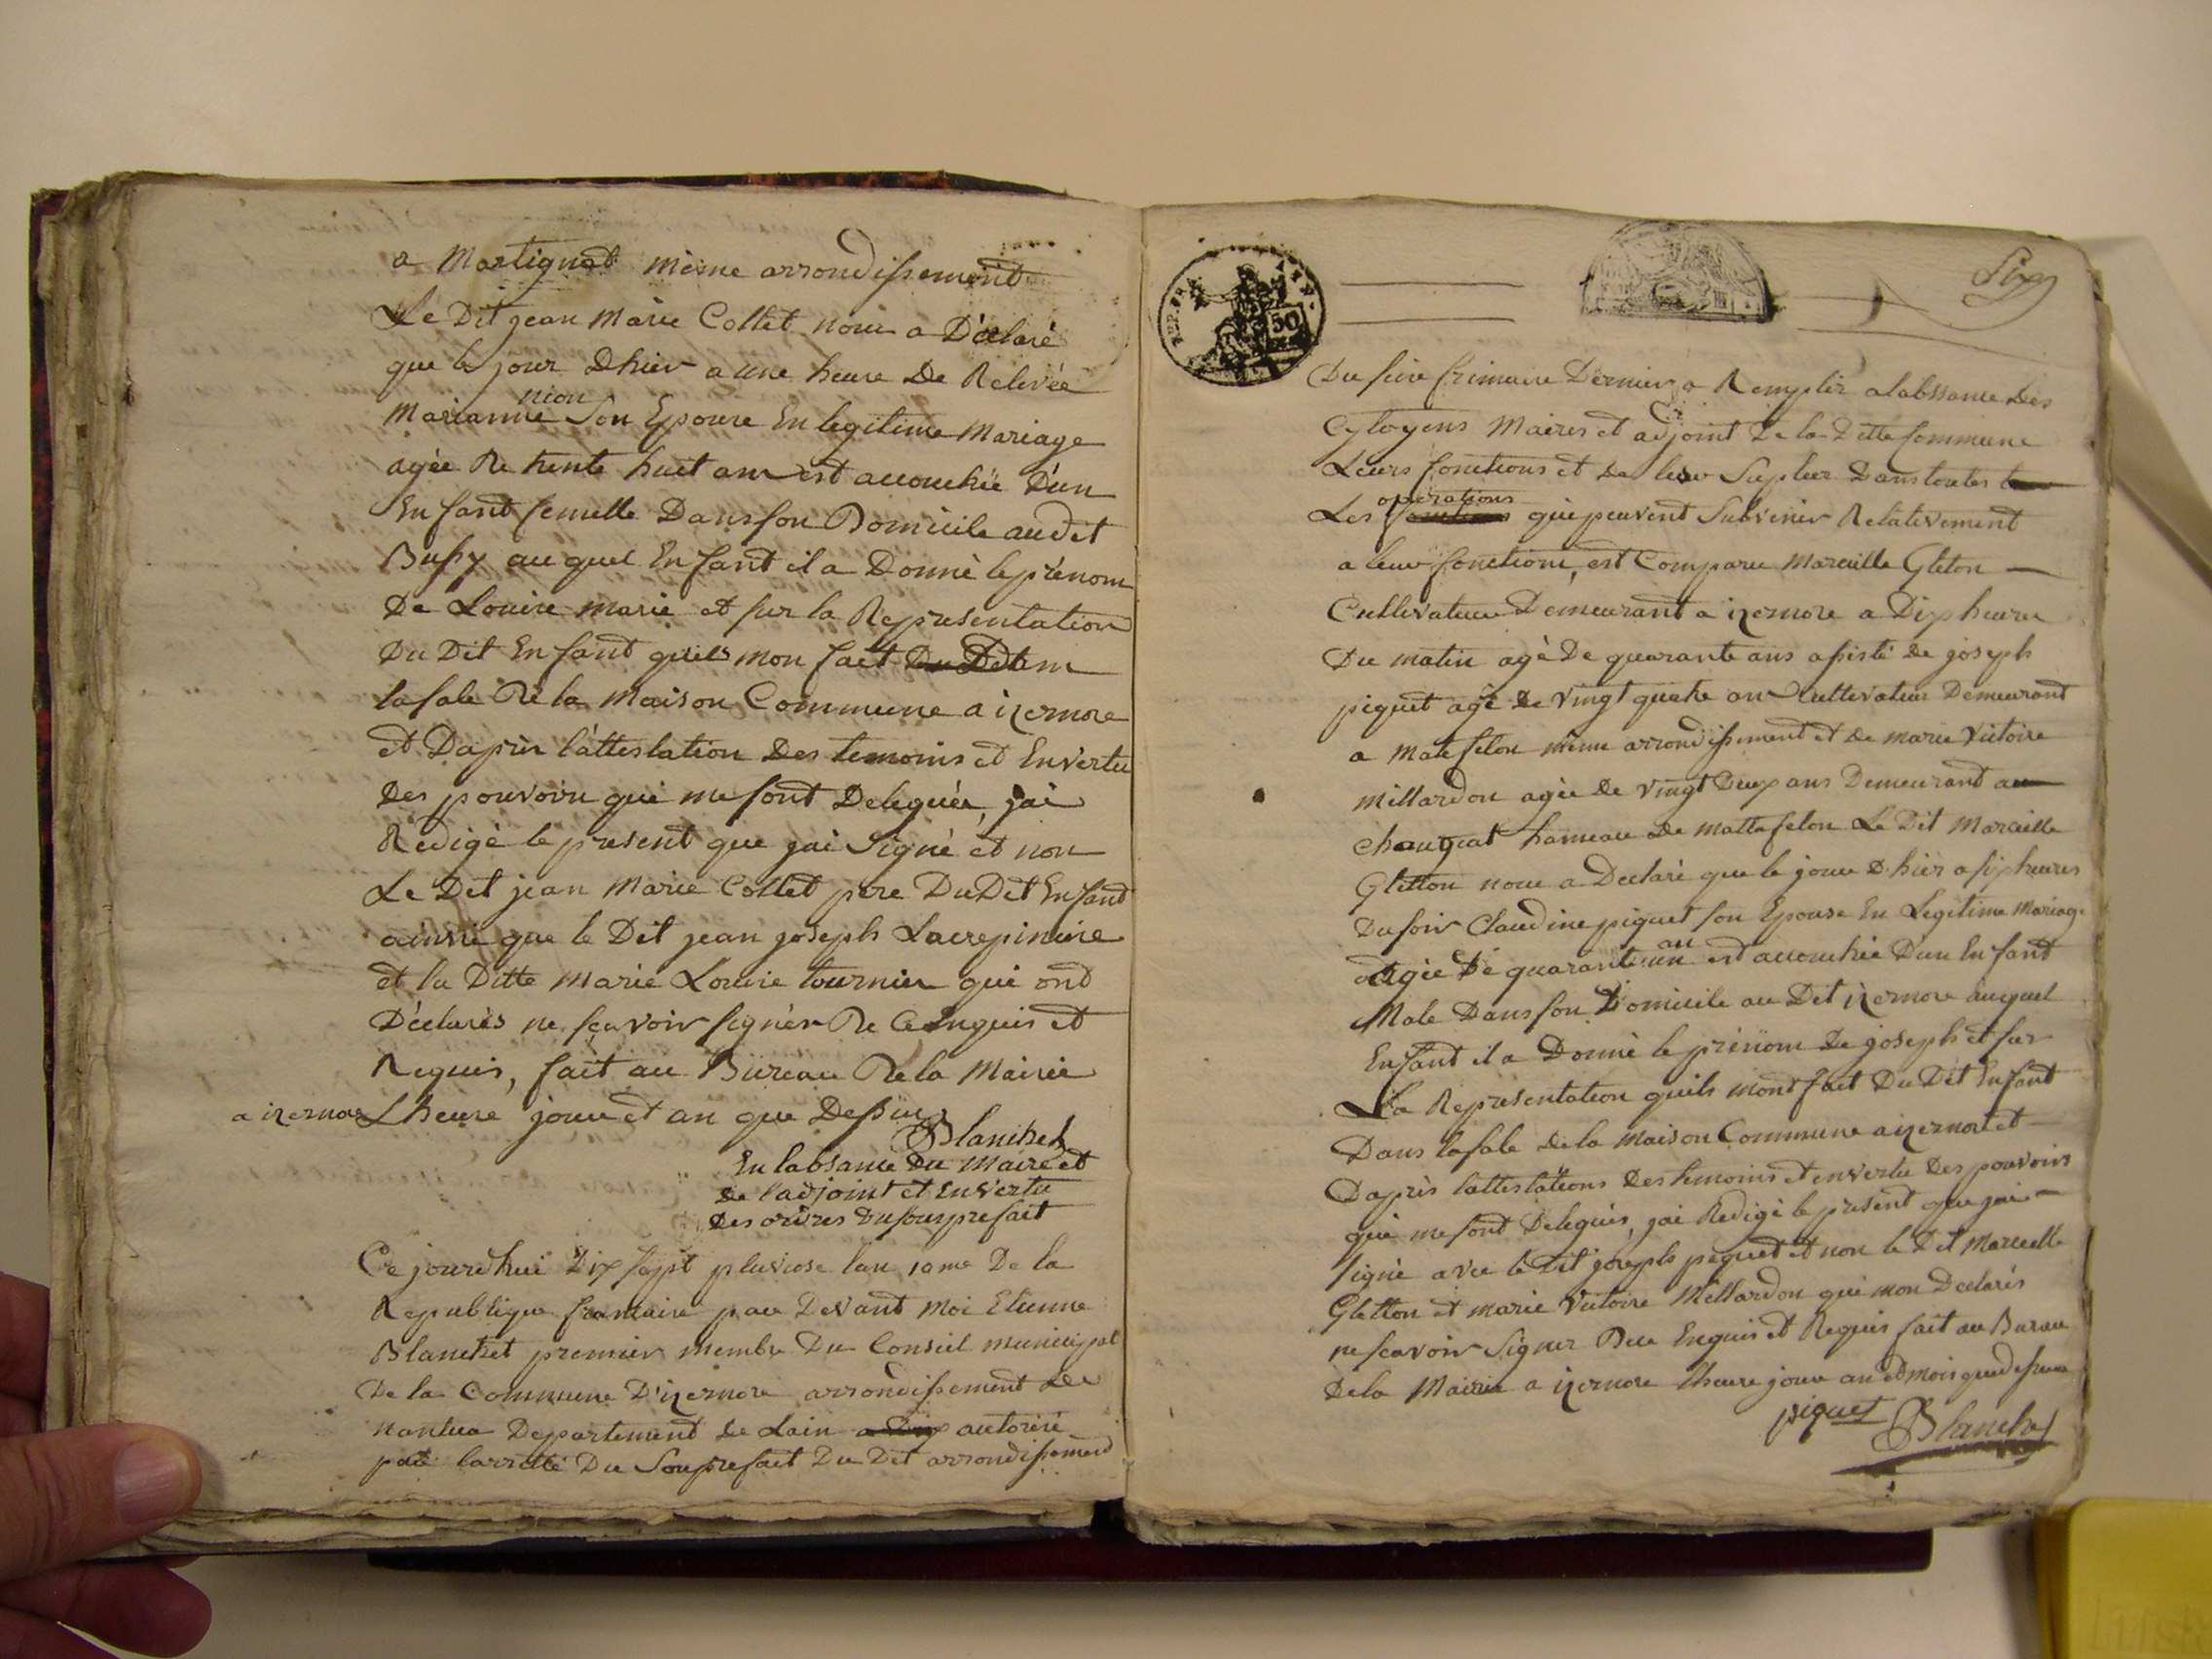 a Martignat même arrondissement
Le Dit jean Marie Collet nous a Déclaré
que le jour Dhier a une heure De Relevée
nion
Marianne Son Epouse En legitime Mariage
agée De trente huit ans est accouchée D'un
Enfant femelle Dans son Domicile audit
Bussy auquel Enfant il a Donné le prénom
De Louise marie et sur la Representation
Du Dit Enfant quils mon fait Du Dit en
la sale De la Maison Commune a izernore
et Daprès l'attestation Des temoins et En vertu
Des pouvoirs qui me sont Delegués, jai
Redigé le present que jai Signé et non
Le Dit jean Marie Collet pere Du Dit Enfant
ainsi que le Dit jean joseph Lacrepiniere
et la Ditte Marie Louise tournier qui ont
Déclarés ne sçavoir signér De Ce Enquis et
Requis, fait au Bureau De la Mairie
a izernore Lheure jour et an que Dessus
Blanchet
En labsance Du Maire et
de l'adjoint et En vertu
Des ordres Du sousprefait
Ce jourdhui Dix sept pluviose lan 10me De la
Republique francaise par Devant Moi Etienne
Blanchet premier membre Du Conseil municipal
De la Commune D'izernore arrondissement de
nantua Departement de Lain a Dix autorisé
par larreté Du Souprefait Du Dit arrondissement
Six
REP. FRA
50
Du seize frimaire Dernier a Remplir a labssance Des
Cytoyens Maires et adjoint De la Ditte Commune
Leurs fonctions et de leur Supleer Dans toutes
operations
Les fonctions qui peuvent Subvenir Relativement
a leur fonctions, est Comparu Marcille Gleton
Cultivateur Demeurant a izernore a Dix heures
Du matin agé De quarante ans assisté de joseph
piquet agé de vingt quatre ans Cultivateur Demeurant
a Matefelon même arrondissement et de marie Victoire
Millardon agée de vingt Deux ans Demeurant au
Chaugeat hameau de mattafelon Le Dit Marcille
Gletton nous a Declaré que le jour D'hier a six heures
Du soir Claudine piquet son Epouse En Legitime Mariage
an
agée De quarante un est accouchée Dun Enfant
Male Dans son Domicile au Dit izernore auquel
Enfant il a Donné le prénom De joseph et sur
La Representation quils mont fait Du Dit Enfant
Dans la sale de la Maison Commune a izernore et
Daprès l'attestations Des temoins et en vertu Des pouvoirs
qui me sont Delegués, jai Redigé le present que jai
signé avec le Dit joseph piquet et non le Dit Marcelle
Gletton et marie Victoire Millardon qui mon Declarés
ne sçavoir Signer De ce Enquis et Requis fait au Bureau
De la Mairie a izernore lheure jour an et mois que dessus
piquet
Blanchet